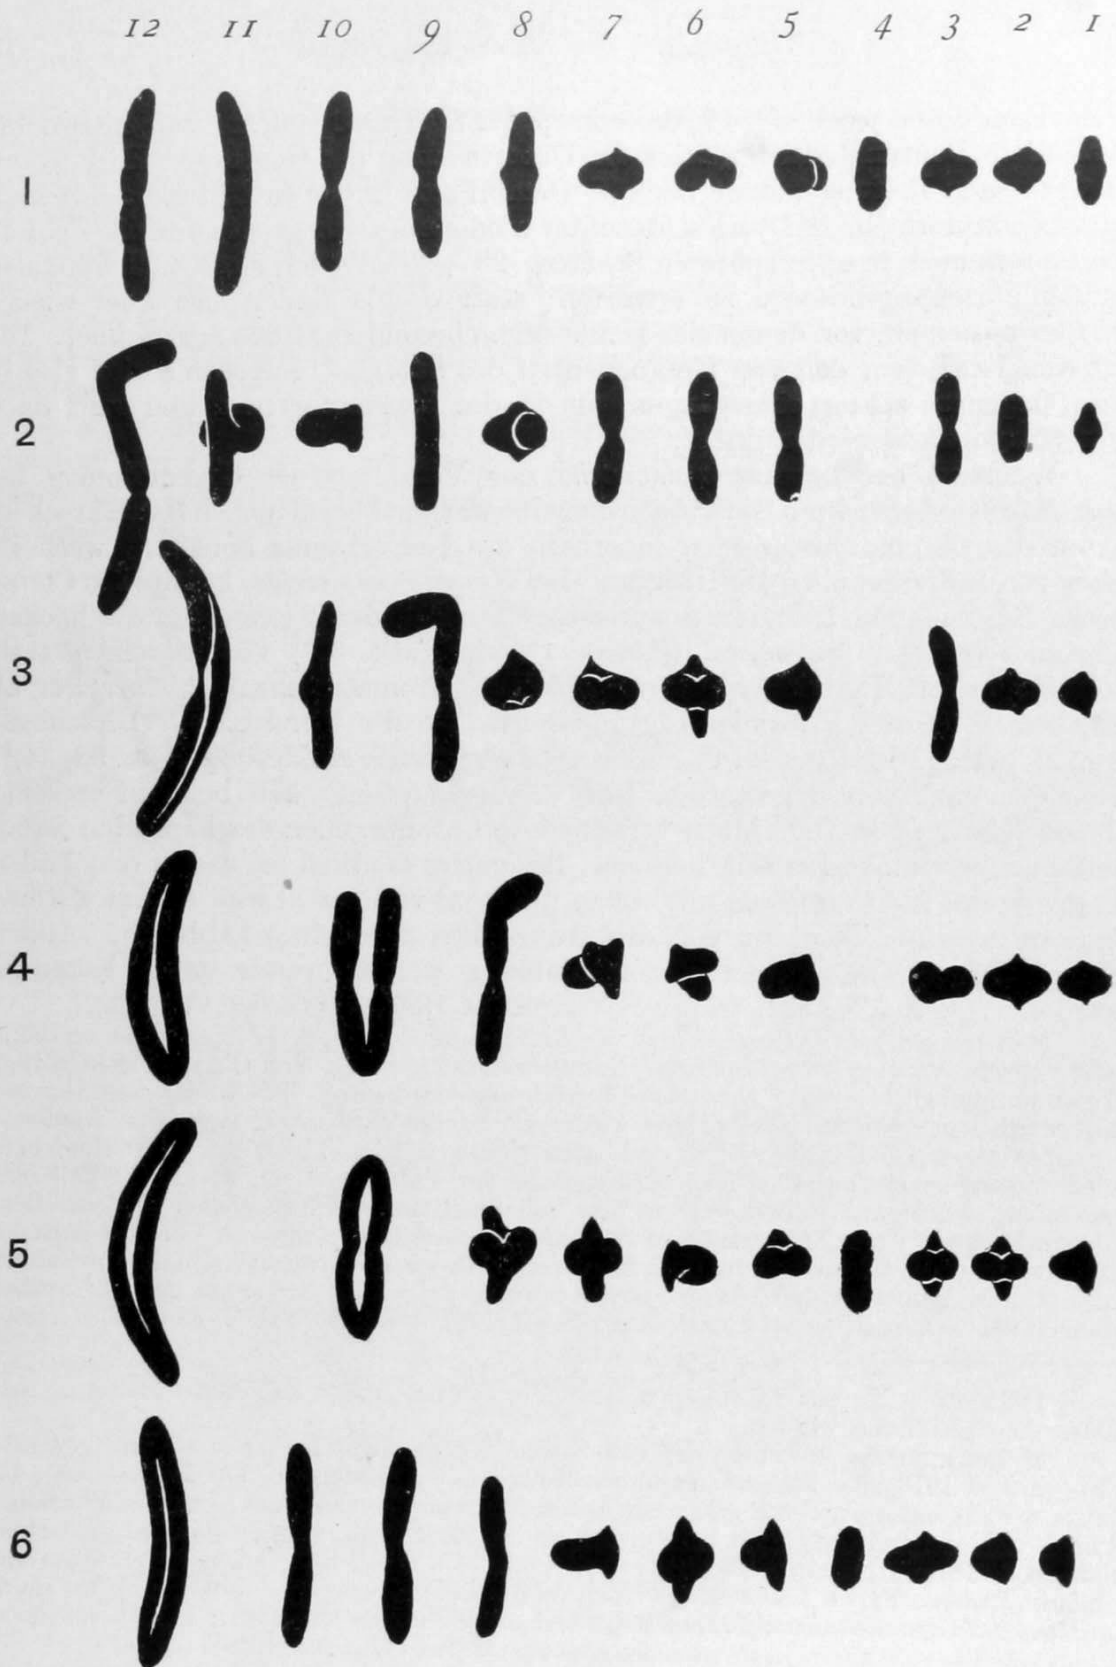 12 11 10 9 8 7 6 5 4 3 2 1
1
2
3
4
5
6